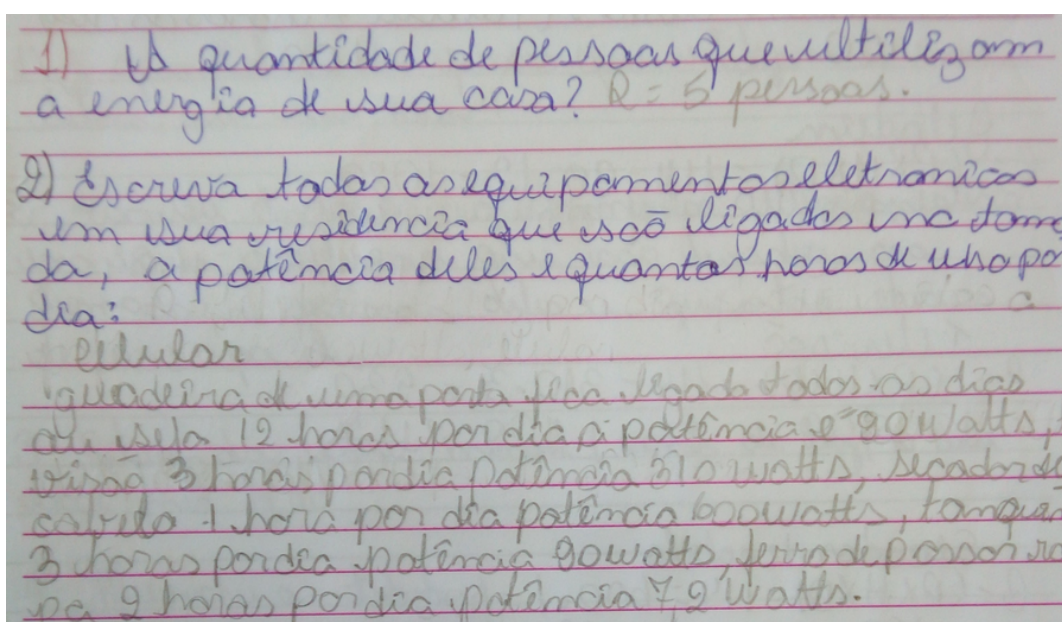 1) A quantidade de pessoas que ultilizam
a energia de sua casa? R = 5 pessoas.
2) Escreva todos os equipamentos eletronicos
em sua residencia que são ligados na toma
da, a potência deles e quantas horas de uso po
dia:
celular
guladeira de uma porta fica ligada todos os dias
ou seja 12 horas por dia a potência e 90 watts,
visão 3 horas por dia potência 310 watts, secador de
cabelo 1 hora por dia potência 600 watts, tanqui
3 horas por dia potência 90 watts, ferro de passar ro
pa 2 horas por dia potência 7,2 watts.